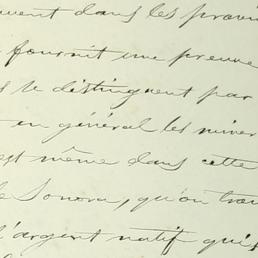 uvent dans les provin
fournit une preuve
se distinguent par
en général les miner
est même dans cette
le Sonora, qu'on trou
l'argent natif qui,